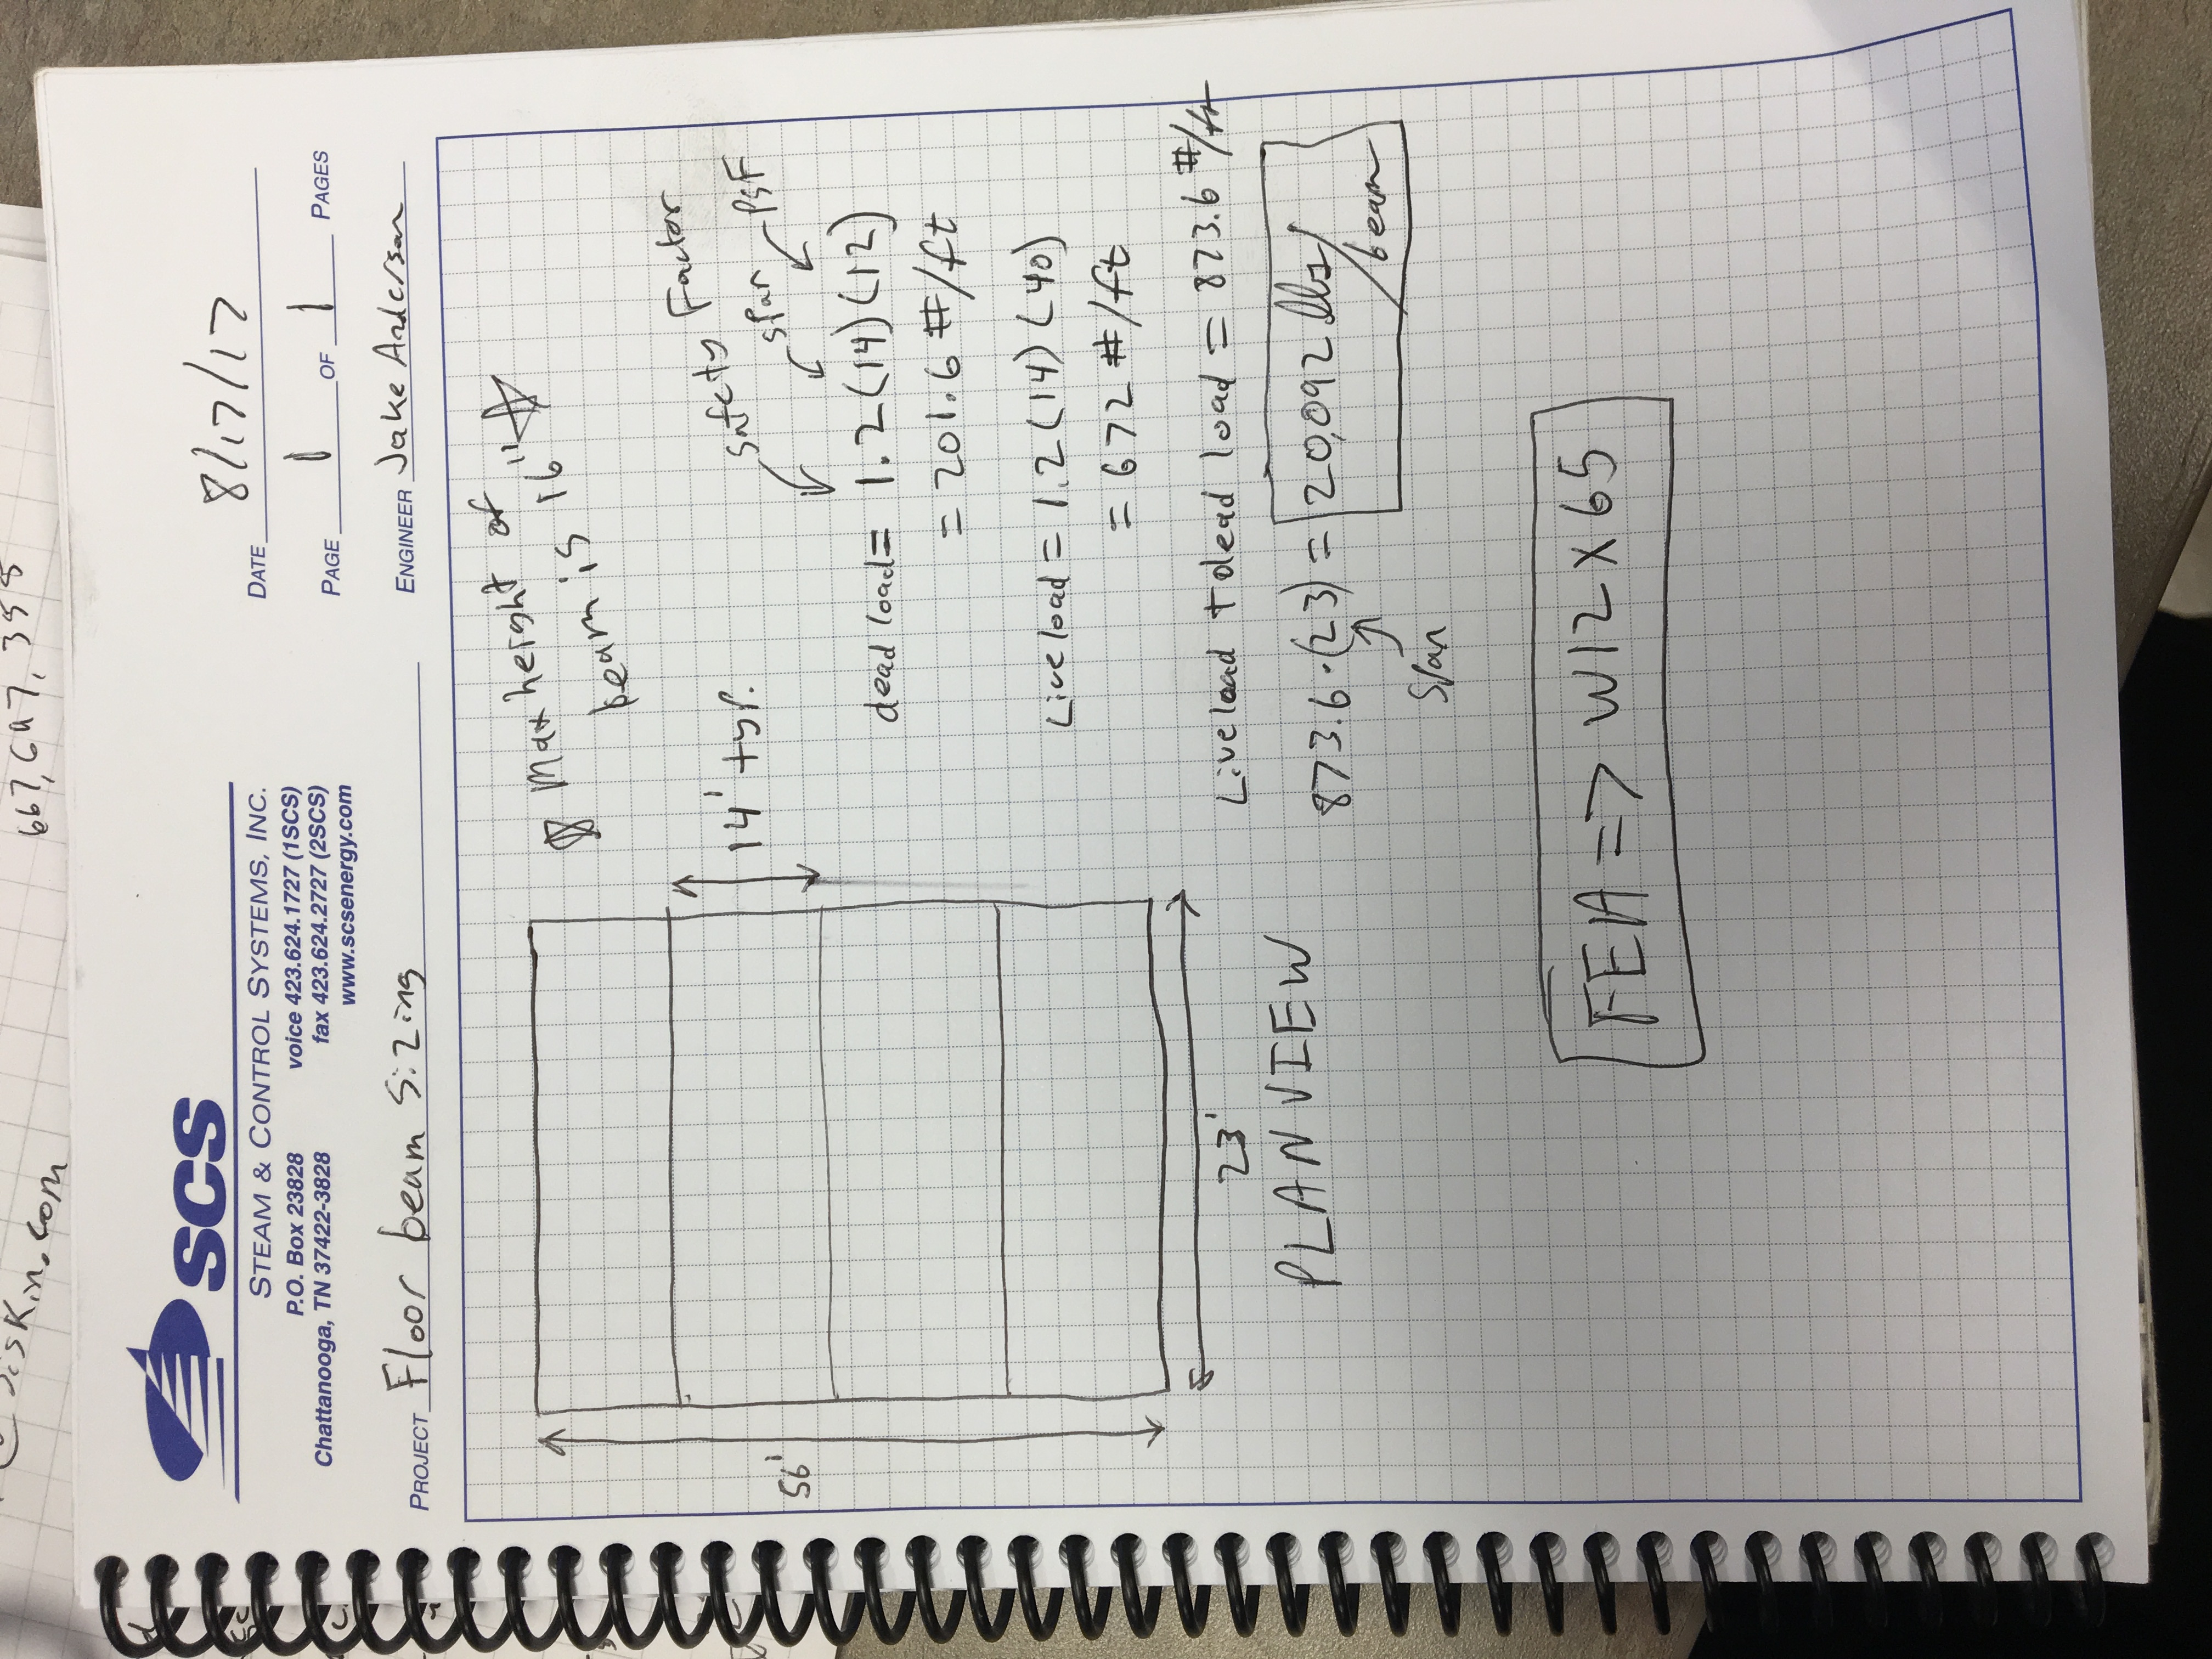 SCS
STEAM & CONTROL SYSTEMS, INC.
P.O. Box 23828 voice 423.624.1727 (1SCS)
Chattanooga, TN 37422-3828 fax 423.624.2727 (2SCS)
www.scsenergy.com
DATE 8/17/17
PAGE 1 OF 1 PAGES
PROJECT Floor beam sizing
ENGINEER Jake Anderson
Max height of
beam is 16"
14' typ.
56'
23'
PLAN VIEW
Safety Factor
span
PSF
dead load = 1.2(14)(12)
= 201.6 #/ft
Live load = 1.2(14)(40)
= 672 #/ft
Live load + dead load = 873.6 #/ft
873.6 · (23) = 20,092 lbs/beam
Span
FEA => W12 X 65
667,647,358
skin.com